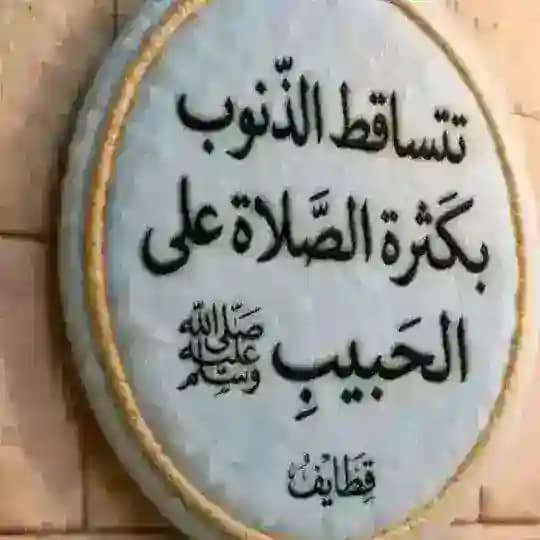 تتساقط الذّنوب
بكَثرة الصَّلاة على
الحَبيبِ ﷺ
قِطَايْفُ